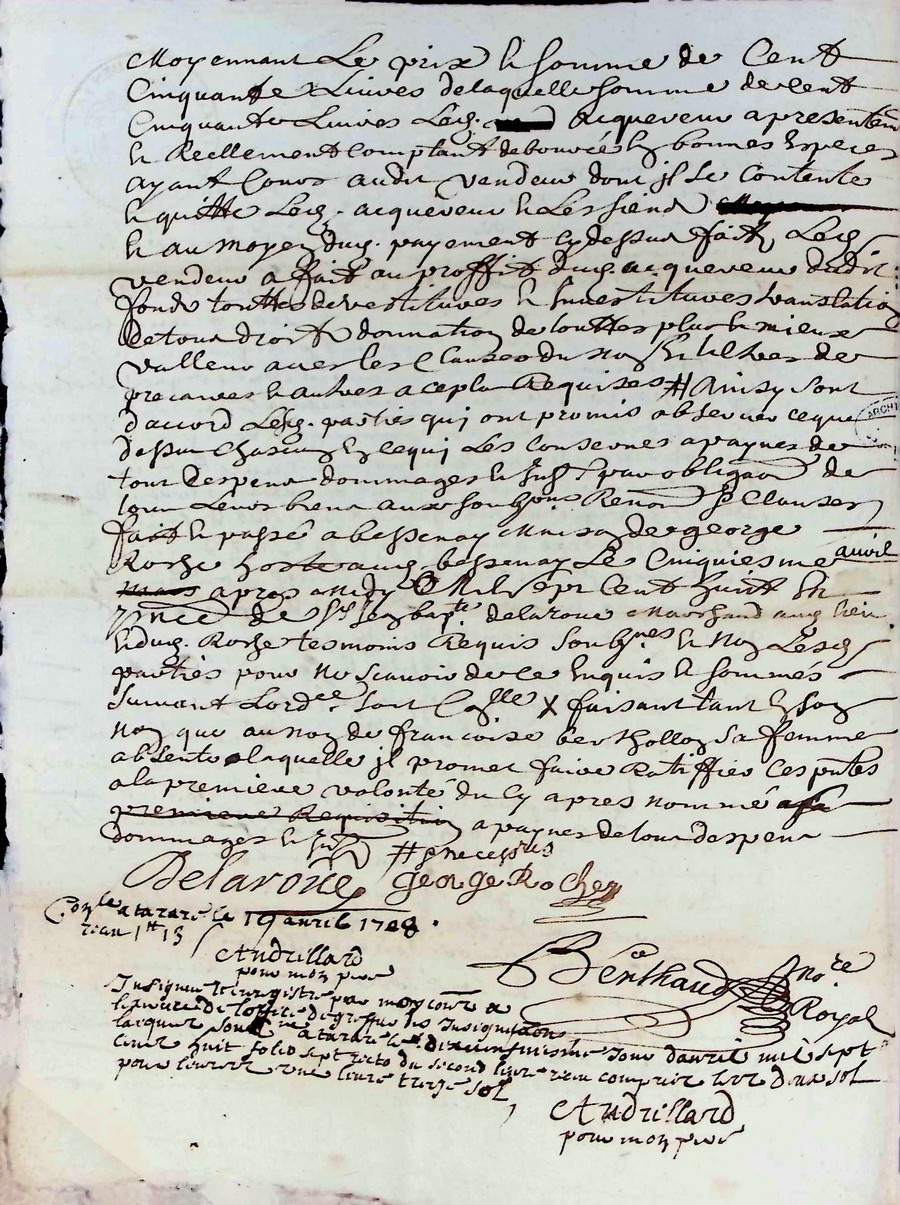 Moyennant Le prix & somme de Cent
Cinquante Liures de laquelle somme de cent
Cinquante Liures Led. acquereur a presentem
& Reellement comptant deboursés En bonnes Especes
ayant Cours audit vendeur dont jl se Contente
& quitte Led. acquereur & Les siens
& au moyen dud. payement cy dessus fait, Led
vendeur a fait au proffit dud. acquereur dudit
fonds touttes devestitures & Investitures translation
de tous droits donnation de touttes plus & mieux
valleur auec les Clauses du no
precaires & autres a ce plus Requises # Ainsy sont
d'accord Lesd. parties qui ont promis obseruer ce que
dessus chascun En ce qui Les conserne a paynes de
tous Despens dommages & par obligaon de
tous Leurs biens aux Renon Clauses
fait & passé a bessenay Maison de george
Roche hoste aud. bessenay Le Cinquiesme auril
mars apres midy Mil sept Cent huit En
pnce de Sr Jean bapte delaroue Marchand aud lieu
& dud. Roche tesmoins Requis soubznes & non Lesd
parties pour ne scauoir de ce Enquis & sommés
suiuant Lordce. X faisant tant En son
nom que au nom de francoise berthollon sa femme
absente a laquelle jl promet faire Ratiffier Ces pntes
a la premiere volonté du cy apres nommé
premiere Requisition a paynes de tous despens
dommages & # & necessres
Delaroüe george Roche
Conlé a tarare le 19 auril 1708.
reçu 1tt 13
Andrillard
pour mon pere
Berthaud no.re
Royal
Insigné & enregistré par moy commis a
lexercice de loffice de greffier des Insignuaons
laquer a tarare le dixneufuiesme Jour dauril mil sept
cent huit folio sept recto du second liure reçu compris les deux sol
pour liure une liure treize sol
Andrillard
pour mon pere